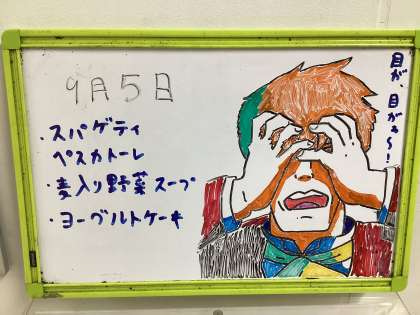 9月5日
・スパゲティ
ペスカトーレ
・麦入り野菜スープ
・ヨーグルトケーキ
目が、目がぁ〜!